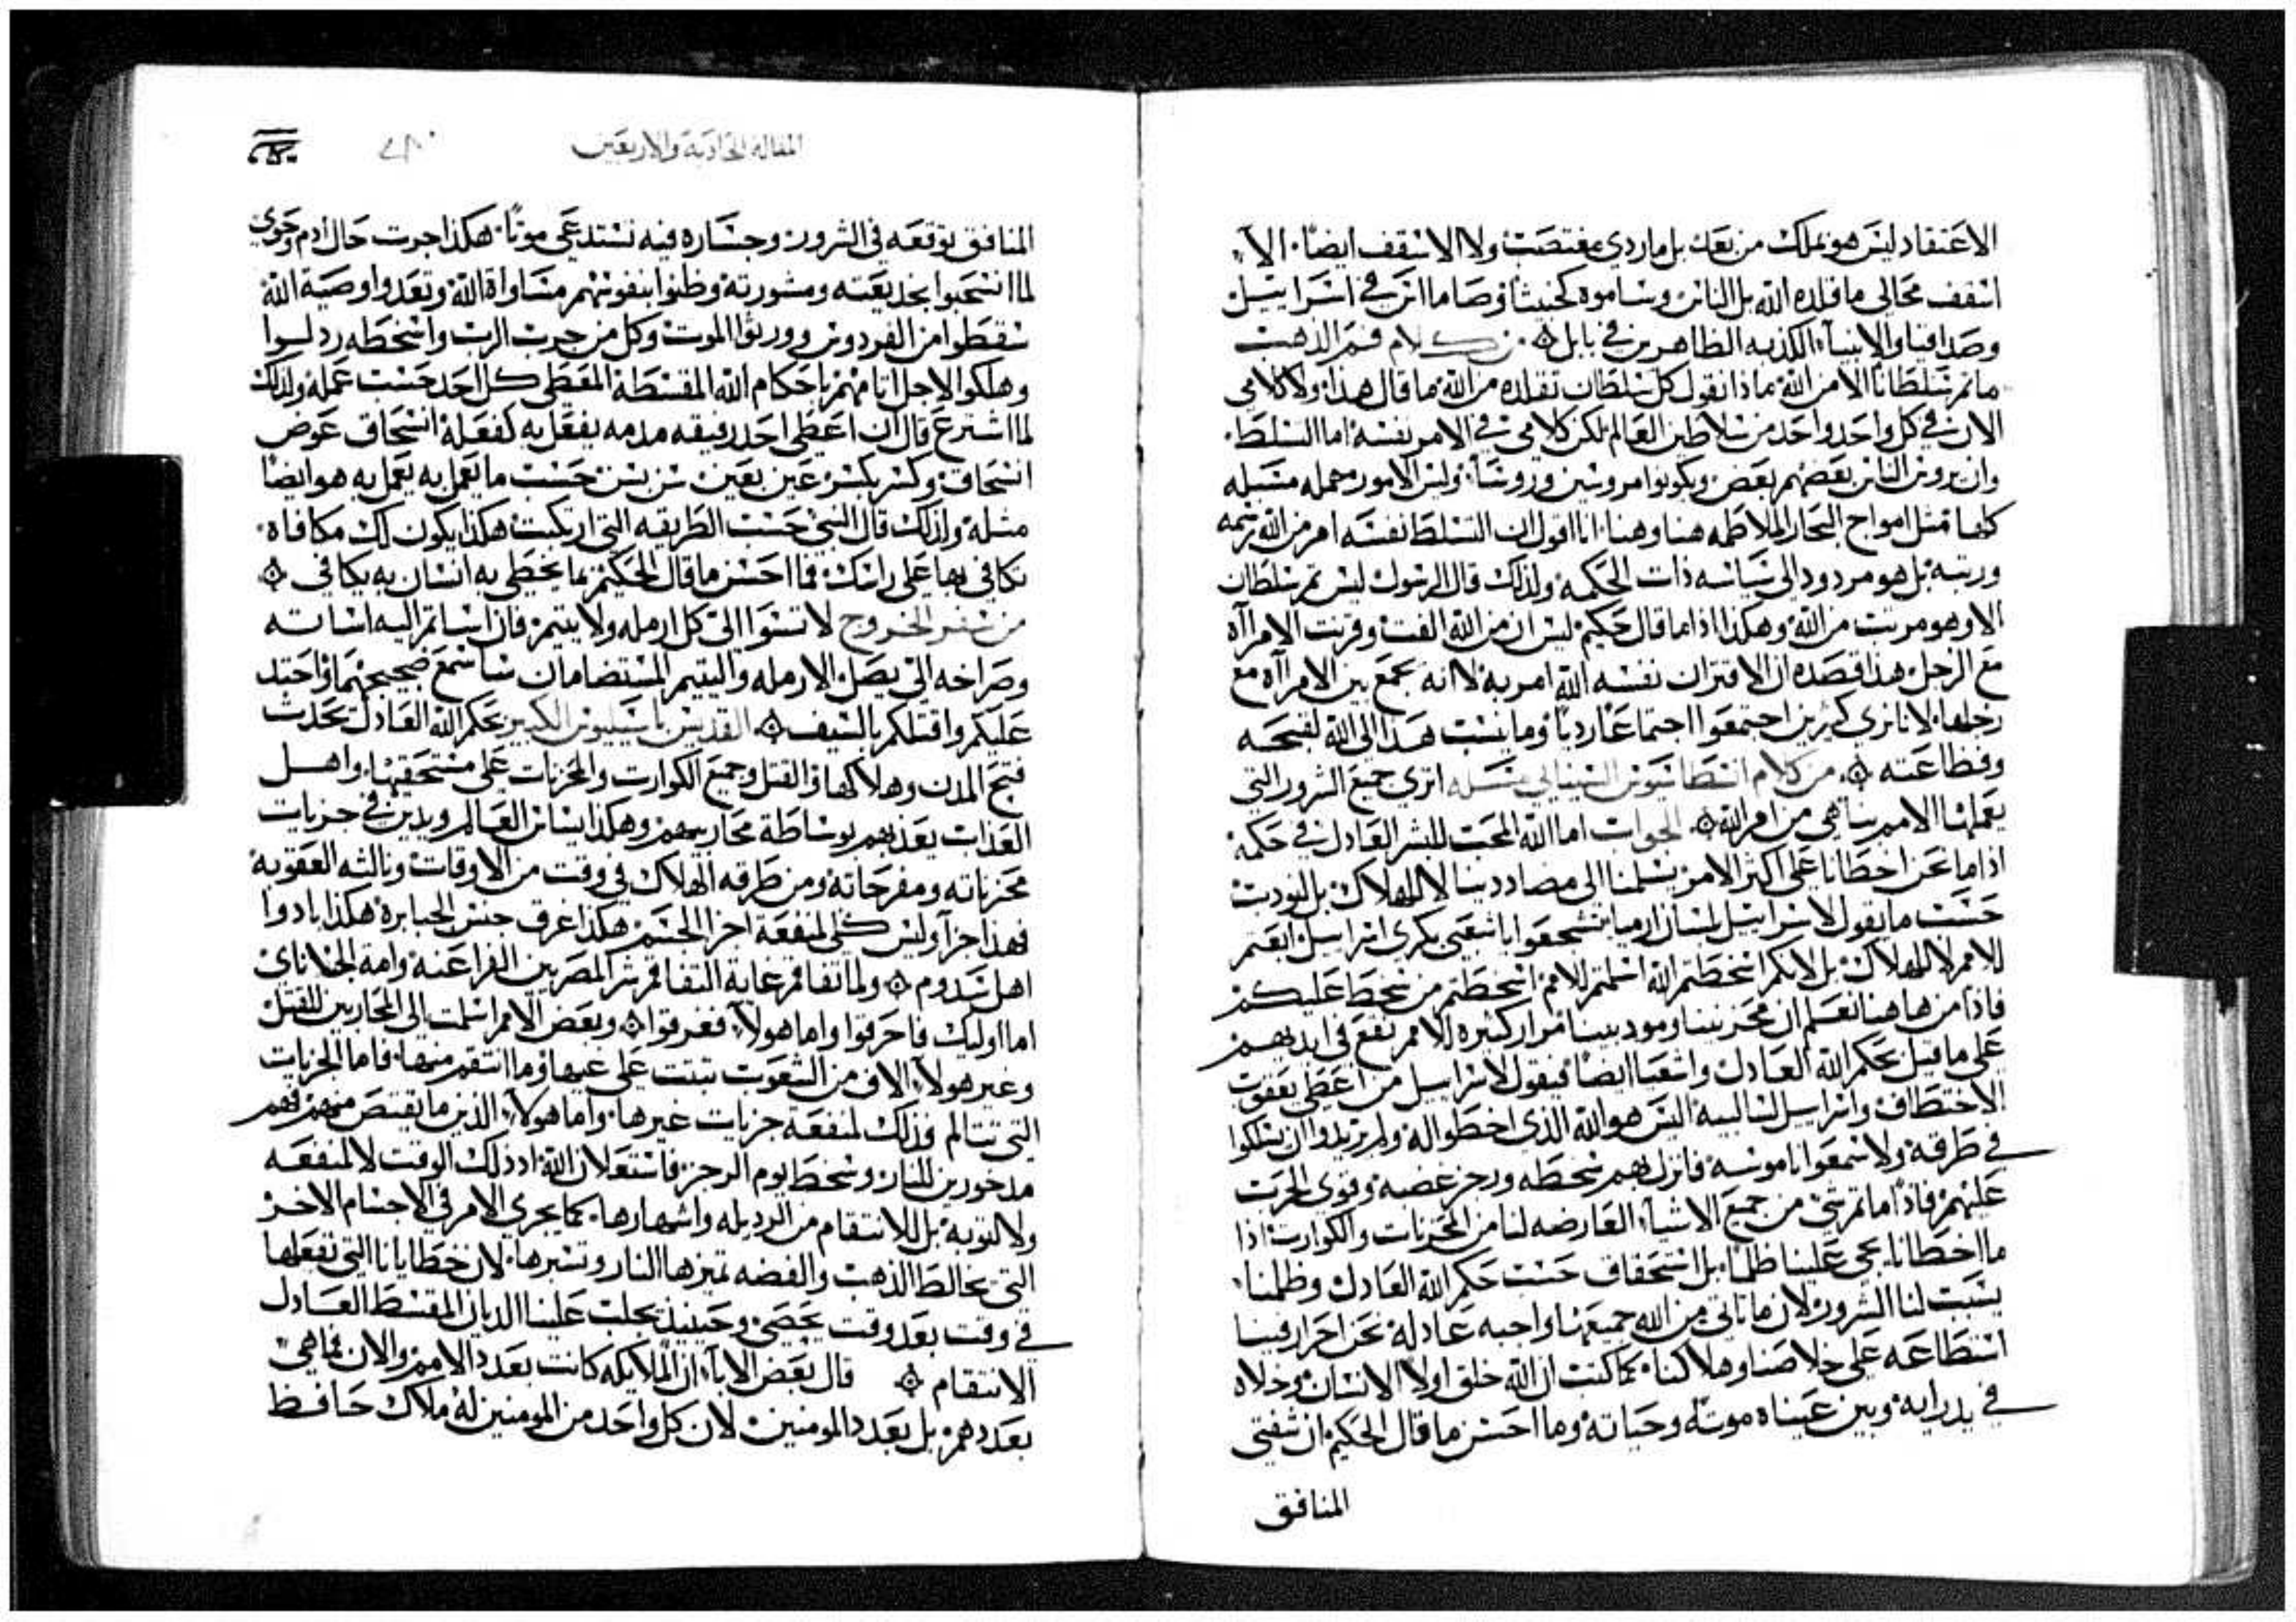 الاعتقاد ليس هو بملك من بعد بل ماردي مغتصب ولا الاسقف ايضًا الا
اسقف محالي ما قلده الله بل الناس وساموه كحنيثا وصاما اثر في اسراييل
وصدافيا والانبيآء الكدبه الظاهرين في بابل من كلام فم الذهب
ما ثم سلطانا الا من الله ماذا نقول كل سلطان تقلده من الله ما قال هذا ولا كلامي
الان في كل واحد واحد من سلاطين العالم لكن كلامي في الامر نفسه اما التسلط
وان يروس الناس بعضهم بعض ويكونوا مروسين وروسآ وليس الامور مهمله متسبله
كلها مثل امواج البحار الملاطمه هنا وهنا انا اقول ان التسلط نفسه امر من الله رسمه
ورتبه بل هو مردود الى سياسه ذات الحكمه ولذلك قال الرسول ليس ثم سلطان
الا وهو مرتب من الله وهكذا اذا ما قال حكيم ليس ان من الله الفت وقرنت الامرآه
مع الرجل هذا قصده ان الاقتران نفسه الله امر به لا انه يجمع بين الامرآه مع
رجلها لانا نري كثيرين اجتمعوا اجتماعًا رديًا وما ينسب هذا الى الله لقبحه
وفظاعته من كلام انسطاسيوس السينايي مسله اتري جميع الشرور التي
يعملها الامم بنا هي من امر الله الجواب اما الله المحب للبشر العادل في حكمه
اذا ما نحن اخطانا على اكثر الامر يسلمنا الى مصاددينا لا للهلاك بل للتوديب
حسب ما يقول لاسراييل بلسان ارميا تشجعوا يا شعبي بكري اسراييل ابعتم
للامم لا للهلاك بل لانكم اسخطتم الله اسلمتم للامم اسخطتم من سخط عليكم
فاذًا من هاهنا نعلم ان محزنينا ومودبينا مرار كثيره الامم نقع في ايديهم
على ما قيل بحكم الله العادل واشعيا ايضًا فيقول لاسراييل من اعطي يعقوب
الاختطاف واسراييل لسالبيه اليس هو الله الذي اخطوا له ولم يريدوا ان يسلكوا
في طرقه ولا سمعوا ناموسه فانزل بهم سخطه ورجز غضبه وقوي الحرب
عليهم فاذًا ما ثم شي من جميع الاشيآء العارضه لنا من المحزنات والكوارث اذا
ما اخطانا يجي علينا ظلمًا بل استحقاق حسب حكم الله العادل وظلمنا
يسبب لنا الشرور لان ما ياتي من الله جميعها واجبه عادله نحن احرار فينا
استطاعه على خلاصنا وهلاكنا كما كتب ان الله خلق اولاً الانسان وخلاه
في يد رايه وبين عيناه موته وحياته وما احسن ما قال الحكيم ان شفتي
المنافق
المقاله الحاديه والاربعين
المنافق توقعه في الشرور وجساره فيه تستدعي موتًا هكذا جرت حال ادم وحوي
لما انسحبوا بخديعته ومشورته وظنوا بنفوسهم مساواة الله وتعدوا وصية الله
سقطوا من الفردوس وورثوا الموت وكل من جرب الرب واسخطه ردلوا
وهلكوا لاجل اثامهم باحكام الله المقسطه المعطي كل احد حسب عمله ولذلك
لما اشترع قال ان اعطي احد رفيقه مدمه يفعل به كفعله انسحاق عوض
انسحاق وكسر بكسر عين بعين سن بسن حسب ما يعمل به يعمل به هو ايضًا
مثله ولذلك قال النبي حسب الطريقه التي ارتكبت هكذا يكون لك مكافاه
تكافي بها على راسك فما احسن ما قال الحكيم بما يخطي به انسان به يكافي
من سفر الخروج لا تسوا الى كل ارمله ولا يتيم فان اساتم اليه اساته
وصراخه الي يصل الارمله واليتيم المستضامان سا سمع ضجيجهما واحتد
عليكم واقتلكم بالسيف القديس باسيليوس الكبير بحكم الله العادل تحدث
فتح المدن وهلاكها والقتل وجميع الكوارث والمحزنات على مستحقيها واهل
العذاب يعذبهم بوساطة محاربيهم وهكذا يسايس العالم ويدين في جزيات
محزناته ومفرحاته ومن طرقه الهلاك في وقت من الاوقات وثالثه العقوبه
فهذا جزآء وليس كلي لمنفعة اجزا الجسم هكذا اغرق جنس الجبابرة هكذا بادوا
اهل سدوم ولما تفاقم غاية التفاقم شر المصريين الفراعنه وامة الخلاناي
اما اوليك فاحرقوا واما هولآء فغرقوا وبعض الامم اسلمت الى المحاربين للقتل
وغير هولآء الاف من الشعوب تبتت على غيها وما انتقم منها فاما الجزيات
التي تتالم فذلك لمنفعة جزيات غيرها واما هولآء الذين ما يقتص منهم فهم
مدخورين للنار وسخط يوم الرجز فاستعلان الله اذ ذلك الوقت لا لمنفعه
ولا لتوبه بل للانتقام من الرديله واشهارها كما يجري الامر في الاجسام الاخر
التي تخالط الذهب والفضه تميزها النار وتسبرها لان خطايانا التي نفعلها
في وقت بعد وقت تحصي وحينيذ يجلب علينا الديان المقسط العادل
الانتقام قال بعض الابآء ان الملايكه كانت بعدد الامم والان فما هي
بعددهم بل بعدد المومنين لان كل واحد من المومنين له ملاك حافظ